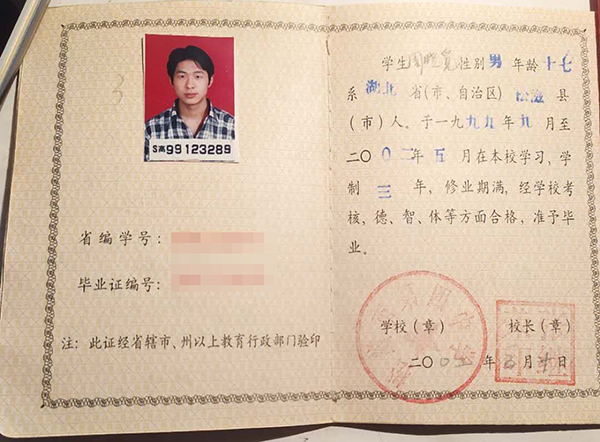 3
S高99123289
省编学号：
毕业证编号：
注：此证经省辖市、州以上教育行政部门验印
学生周晓 性别男年龄十七
系湖北省(市、自治区)松滋县
(市)人。于一九九九年九月至
二〇〇二年五月在本校学习，学
制三年，修业期满，经学校考
核，德、智、体等方面合格，准予毕
业。
学校（章）
校长（章）
二〇〇二年 月 日